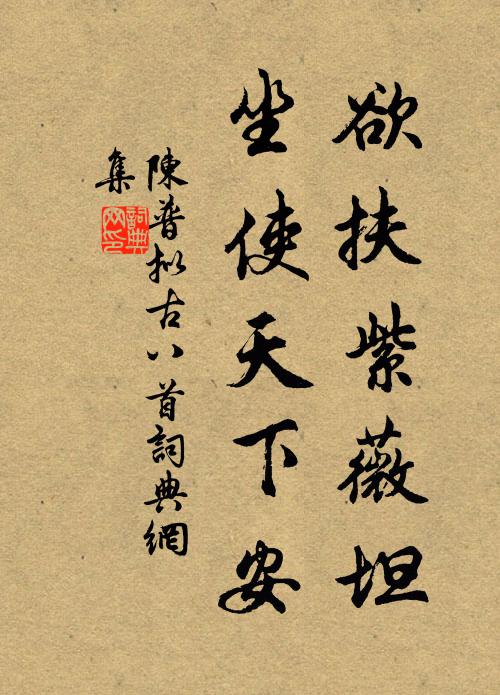 欲扶紫薇坦
坐使天下安
陳普擬古八首詞典網
集
詞典网印